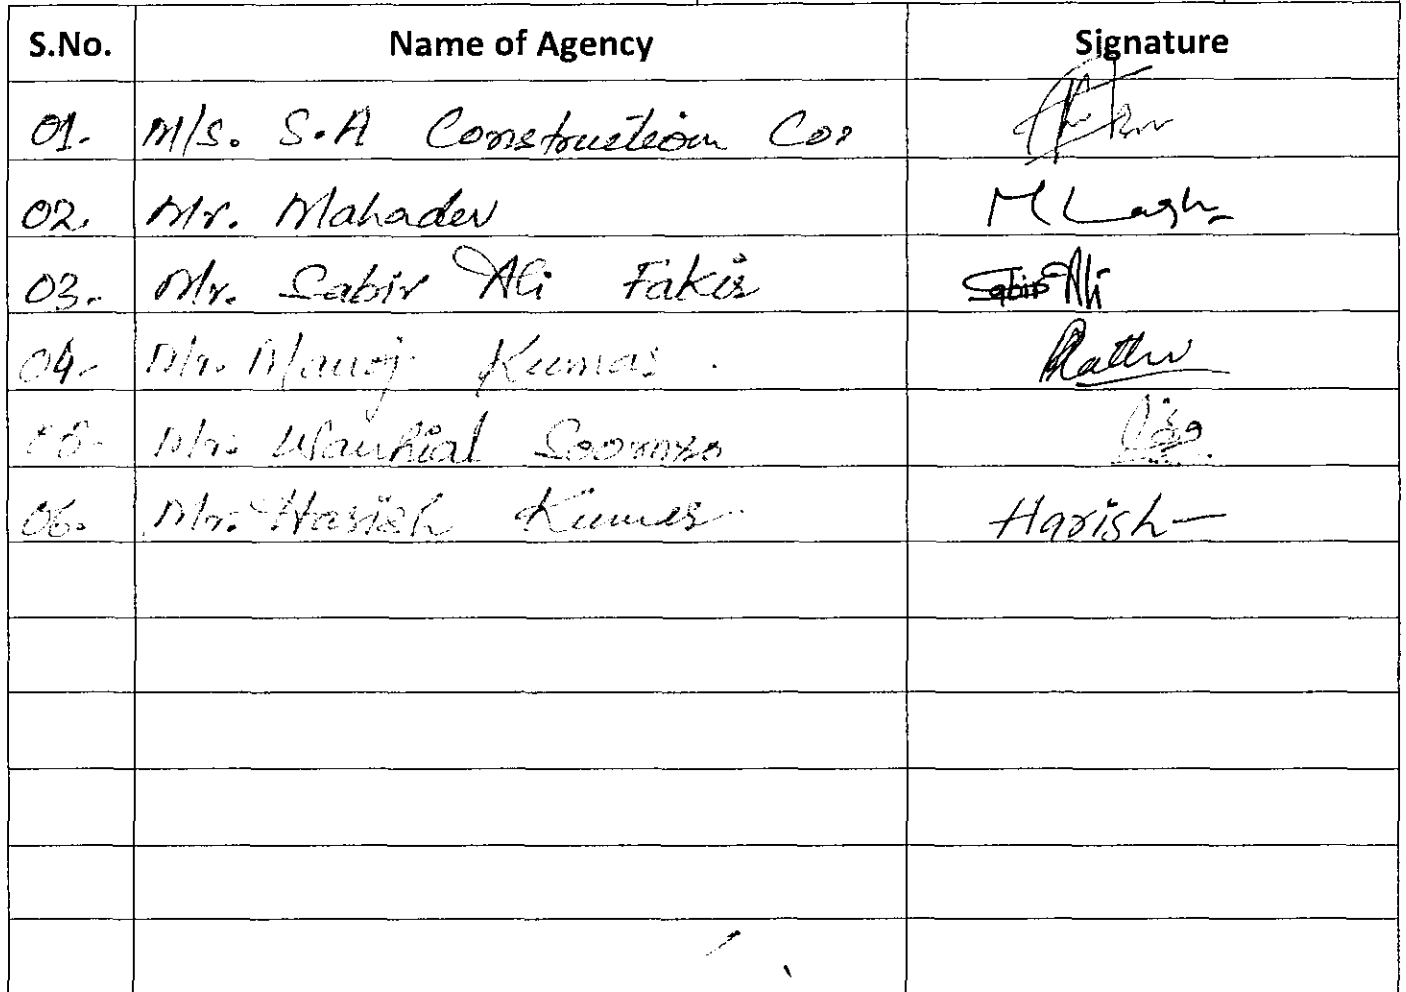 S.No. Name of Agency Signature
01. M/s. S.A Construction Co:
02. Mr. Mahadev M Lagh
03. Mr. Sabir Ali Fakir Sabir Ali
04. Mr. Manoj Kumar
05. Mr. Warhial Soomro
06. Mr. Harish Kumar Harish